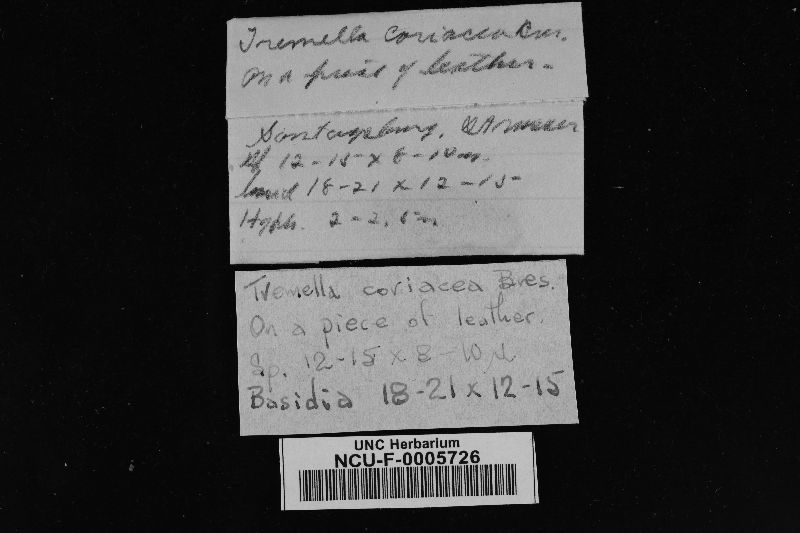 Tremella coriacea Bres.
On a piece of leather.
12-15 x 8-10
18-21 x 12-15
Hyph. 2-2.5
Tremella coriacea Bres.
On a piece of leather.
Sp. 12-15 x 8-10 µ
Basidia 18-21 x 12-15
UNC Herbarium
NCU-F-0005726